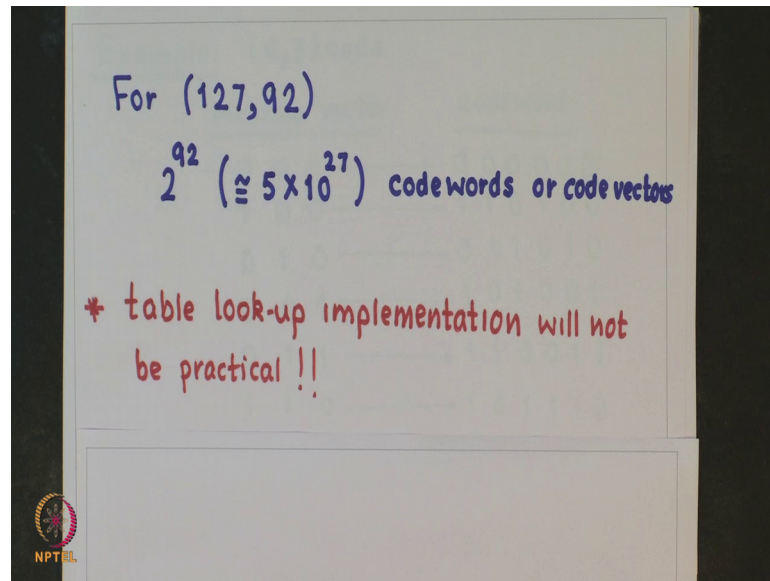 For (127,92)
2^92 (≅ 5 × 10^27) codewords or codevectors
* table look-up implementation will not
be practical !!
NPTEL